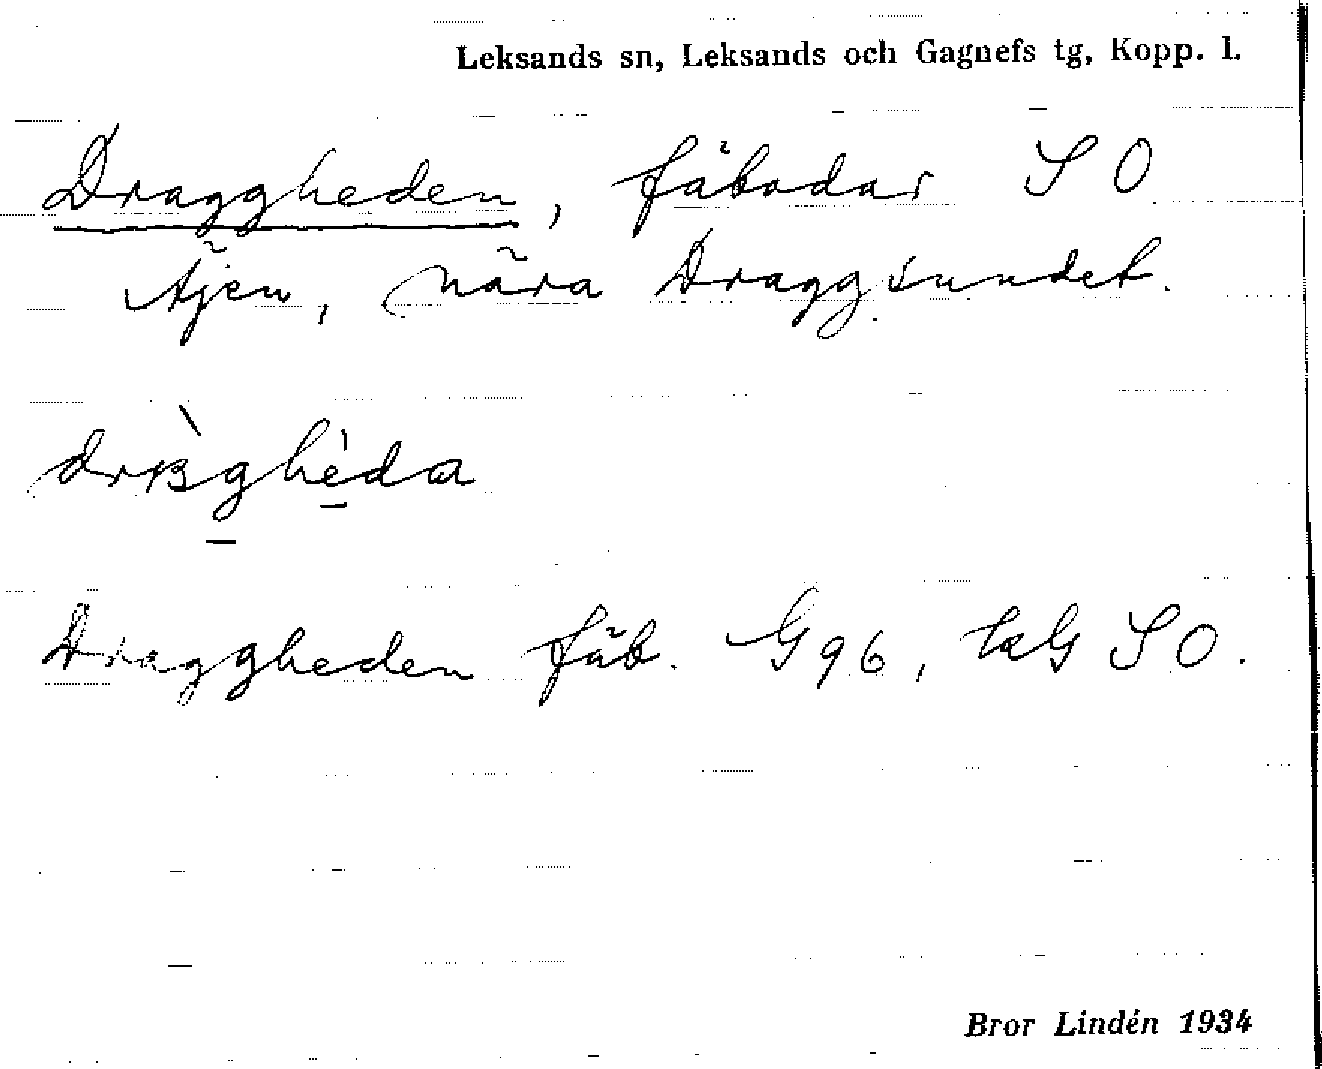 Leksands sn, Leksands och Gagnefs tg, Kopp. l.
Draggheden, fäbodar S O
Äjen, nära Draggsundet.
Draggheden fäb. G96, S O.
Bror Lindén 1934